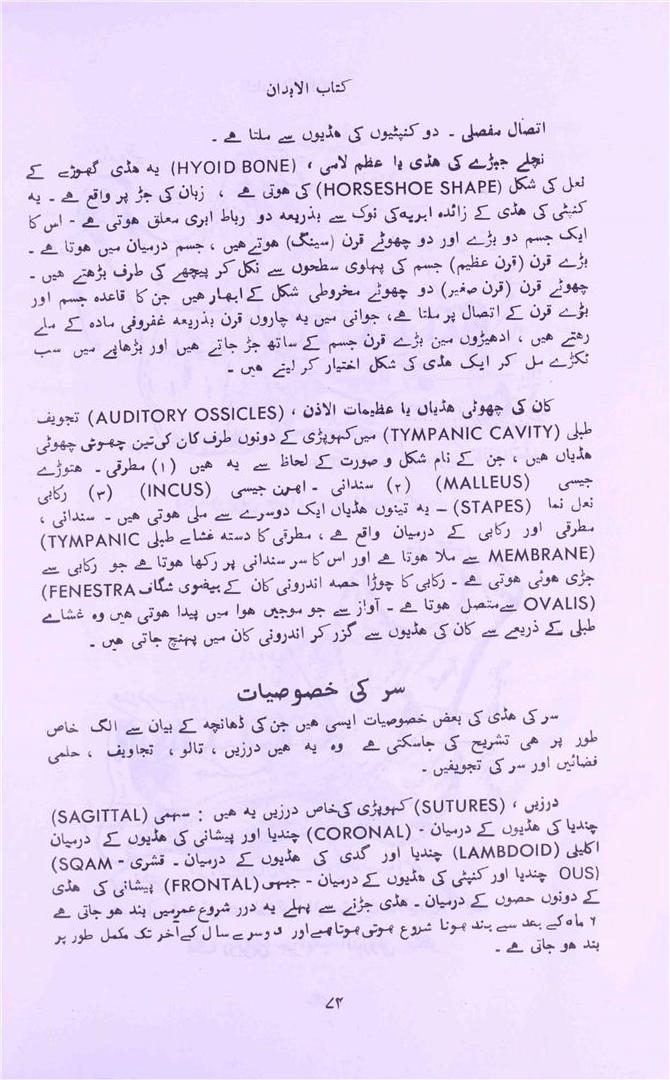 کتاب الابدان
اتصال مفصلی ۔ دو کنپٹیوں کی ھڈیوں سے ملتا ھے ۔
نچلے جبڑے کی ھڈی یا عظم لامی ، (HYOID BONE) یہ ھڈی گھوڑے کے
نعل کی شکل (HORSESHOE SHAPE) کی ھوتی ھے ، زبان کی جڑ پر واقع ھے ۔ یہ
کنپٹی کی ھڈی کے زائدہ ابریہ کی نوک سے بذریعہ دو رباط ابری معلق ھوتی ھے - اس کا
ایک جسم دو بڑے اور دو چھوٹے قرن (سینگ) ھوتے ھیں ، جسم درمیان میں ھوتا ھے ۔
بڑے قرن (قرن عظیم) جسم کی پہاوی سطحوں سے نکل کر پیچھے کی طرف بڑھتے ھیں ۔
چھوٹے قرن (قرن صغیر) دو چھوٹے مخروطی شکل کے ابھار ھیں جن کا قاعدہ جسم اور
بڑے قرن کے اتصال پر ملتا ھے، جوانی میں یہ چاروں قرن بذریعہ غفروفی مادہ کے ملے
رھتے ھیں ، ادھیڑوں مین بڑے قرن جسم کے ساتھ جڑ جاتے ھیں اور بڑھاپے میں سب
ٹکڑے مل کر ایک ھڈی کی شکل اختیار کر لیتے ھیں ۔
کان کی چھوٹی ھڈیاں یا عظیمات الاذن ، (AUDITORY OSSICLES) تجویف
طبلی (TYMPANIC CAVITY) میں کھوپڑی کے دونوں طرف کان کی تین چھوٹی چھوٹی
ھڈیاں ھیں ، جن کے نام شکل و صورت کے لحاظ سے یہ ھیں (۱) مطرقی ۔ ھتوڑے
جیسی (MALLEUS) (۲) سندانی ۔ اھرن جیسی (INCUS) (۳) رکابی
نعل نما (STAPES) – یہ تینوں ھڈیاں ایک دوسرے سے ملی ھوتی ھیں ۔ سندانی ،
مطرقی اور رکابی کے درمیان واقع ھے ، مطرقی کا دستہ غشائے طبلی (TYMPANIC
MEMBRANE) سے ملا ھوتا ھے اور اس کا سر سندانی پر رکھا ھوتا ھے جو رکابی سے
جڑی ھوئی ھوتی ھے ۔ رکابی کا چوڑا حصہ اندرونی کان کے بیضوی شگاف (FENESTRA
OVALIS) سے متصل ھوتا ھے ۔ آواز سے جو موجیں ھوا میں پیدا ھوتی ھیں وہ غشائے
طبلی کے ذریعے سے کان کی ھڈیوں سے گزر کر اندرونی کان میں پہنچ جاتی ھیں ۔
سر کی خصوصیات
سر کی ھڈی کی بعض خصوصیات ایسی ھیں جن کی ڈھانچہ کے بیان سے الگ خاص
طور پر ھی تشریح کی جاسکتی ھے وہ یہ ھیں درزیں ، تالو ، تجاویف ، حلمی
فضائیں اور سر کی تجویفیں ۔
درزیں ، (SUTURES) کھوپڑی کی خاص درزیں یہ ھیں : سہمی (SAGITTAL)
چندیا کی ھڈیوں کے درمیان - (CORONAL) چندیا اور پیشانی کی ھڈیوں کے درمیان
اکلیلی (LAMBDOID) چندیا اور گدی کی ھڈیوں کے درمیان ۔ قشری (SQAM-
OUS) چندیا اور کنپٹی کی ھڈیوں کے درمیان - جبہی (FRONTAL) پیشانی کی ھڈی
کے دونوں حصوں کے درمیان ۔ ھڈی جڑنے سے پہلے یہ درر شروع عمرمیں بند ھو جاتی ھے
۶ ماہ کے بعد سے بند ھونا شروع ھوتی ھوتاھے اور دوسرے سال کے آخر تک مکمل طور پر
بند ھو جاتی ھے ۔
۷۲